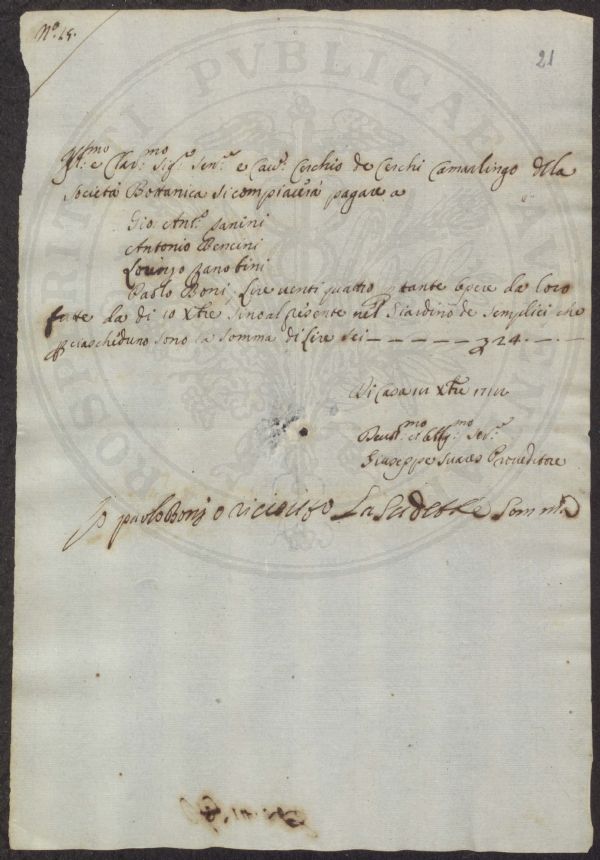 N.º 25.
21
Ill.mo e Clar.mo Sig.re Sen.re e Cav.e Cerchio de Cerchi Camarlingo della
Società Bottanica si compiacerà pagare a
Gio Ant.o Panini
Antonio Bencini
Lorenzo Zanobini
Paolo Boni, Lire venti quattro p tante Opere da loro
fatte da di 10 Xbre sino al presente nel Giardino de Semplici che
p ciascheduno sono la somma di Lire sei — — — — — 24 — . —
Di Casa Xbre
Devot.mo et Obblig.mo Ser.e
Giuseppe Suares Proveditore
Io paolo Boni o ricieuto La sudette Somma
PROSPERITATI PVBLICAE AVGENDAE